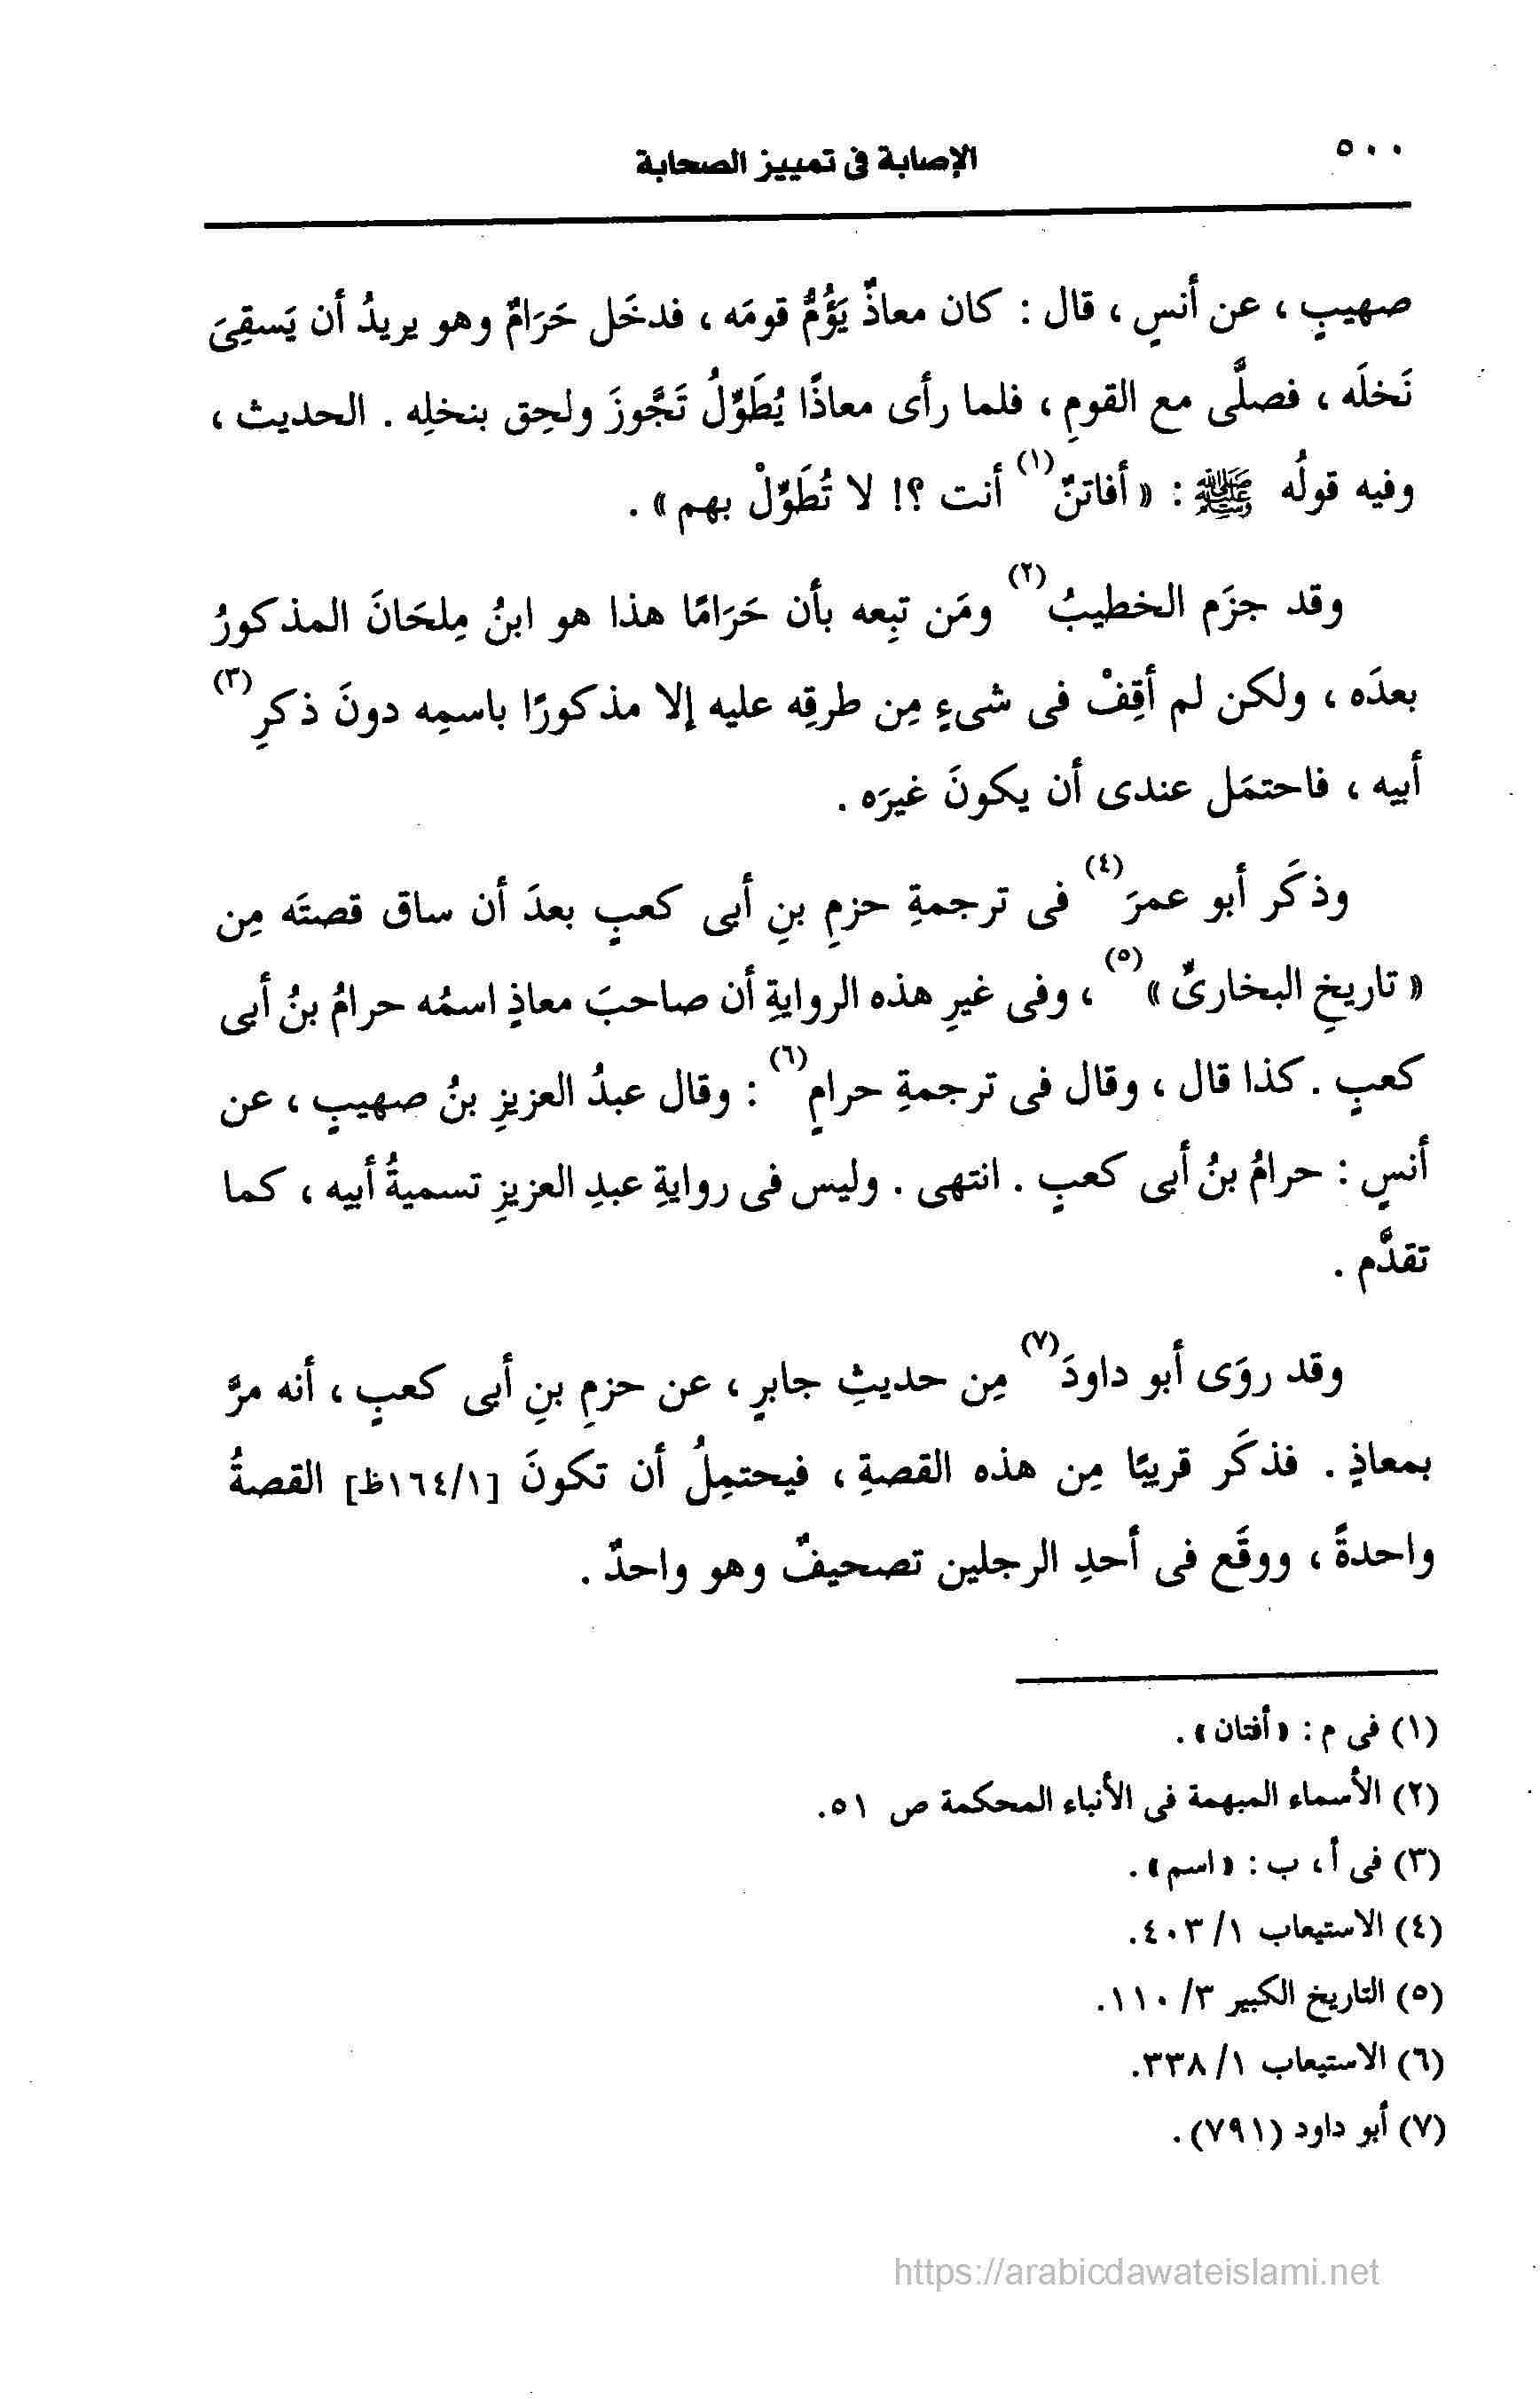 ٥٠٠ الإصابة فى تمييز الصحابة
صهيبٍ ، عن أنسٍ ، قال : كان معاذٌ يَؤُمُّ قومَه ، فدخَل حَرَامٌ وهو يريدُ أن يَسقِىَ
نَخلَه ، فصلَّى مع القومِ ، فلما رأى معاذًا يُطَوِّلُ تَجَّوزَ ولحِق بنخلِه . الحديث ،
وفيه قولُه ﷺ : « أفاتنٌ(١) أنت ؟! لا تُطَوِّلْ بهم » .
وقد جزَم الخطيبُ(٢) ومَن تبِعه بأن حَرَامًا هذا هو ابنُ مِلحَانَ المذكورُ
بعدَه ، ولكن لم أقِفْ فى شىءٍ مِن طرقِه عليه إلا مذكورًا باسمِه دونَ ذكرِ(٣)
أبيه ، فاحتمَل عندى أن يكونَ غيرَه .
وذكَر أبو عمرَ(٤) فى ترجمةِ حزمِ بنِ أبى كعبٍ بعدَ أن ساق قصتَه مِن
« تاريخِ البخارىِّ »(٥) ، وفى غيرِ هذه الروايةِ أن صاحبَ معاذٍ اسمُه حرامُ بنُ أبى
كعبٍ . كذا قال ، وقال فى ترجمةِ حرامٍ(٦) : وقال عبدُ العزيزِ بنُ صهيبٍ ، عن
أنسٍ : حرامُ بنُ أبى كعبٍ . انتهى . وليس فى روايةِ عبدِ العزيزِ تسميةُ أبيه ، كما
تقدَّم .
وقد روَى أبو داودَ(٧) مِن حديثِ جابرٍ ، عن حزمِ بنِ أبى كعبٍ ، أنه مرَّ
بمعاذٍ . فذكَر قريبًا مِن هذه القصةِ ، فيحتمِلُ أن تكونَ [١/١٦٤ظ] القصةُ
واحدةً ، ووقَع فى أحدِ الرجلين تصحيفٌ وهو واحدٌ .
(١) فى م : « أفتان » .
(٢) الأسماء المبهمة فى الأنباء المحكمة ص ٥١.
(٣) فى أ ، ب : « اسم » .
(٤) الاستيعاب ١/ ٤٠٣.
(٥) التاريخ الكبير ٣/ ١١٠.
(٦) الاستيعاب ١/ ٣٣٨.
(٧) أبو داود (٧٩١) .
https://arabicdawateislami.net